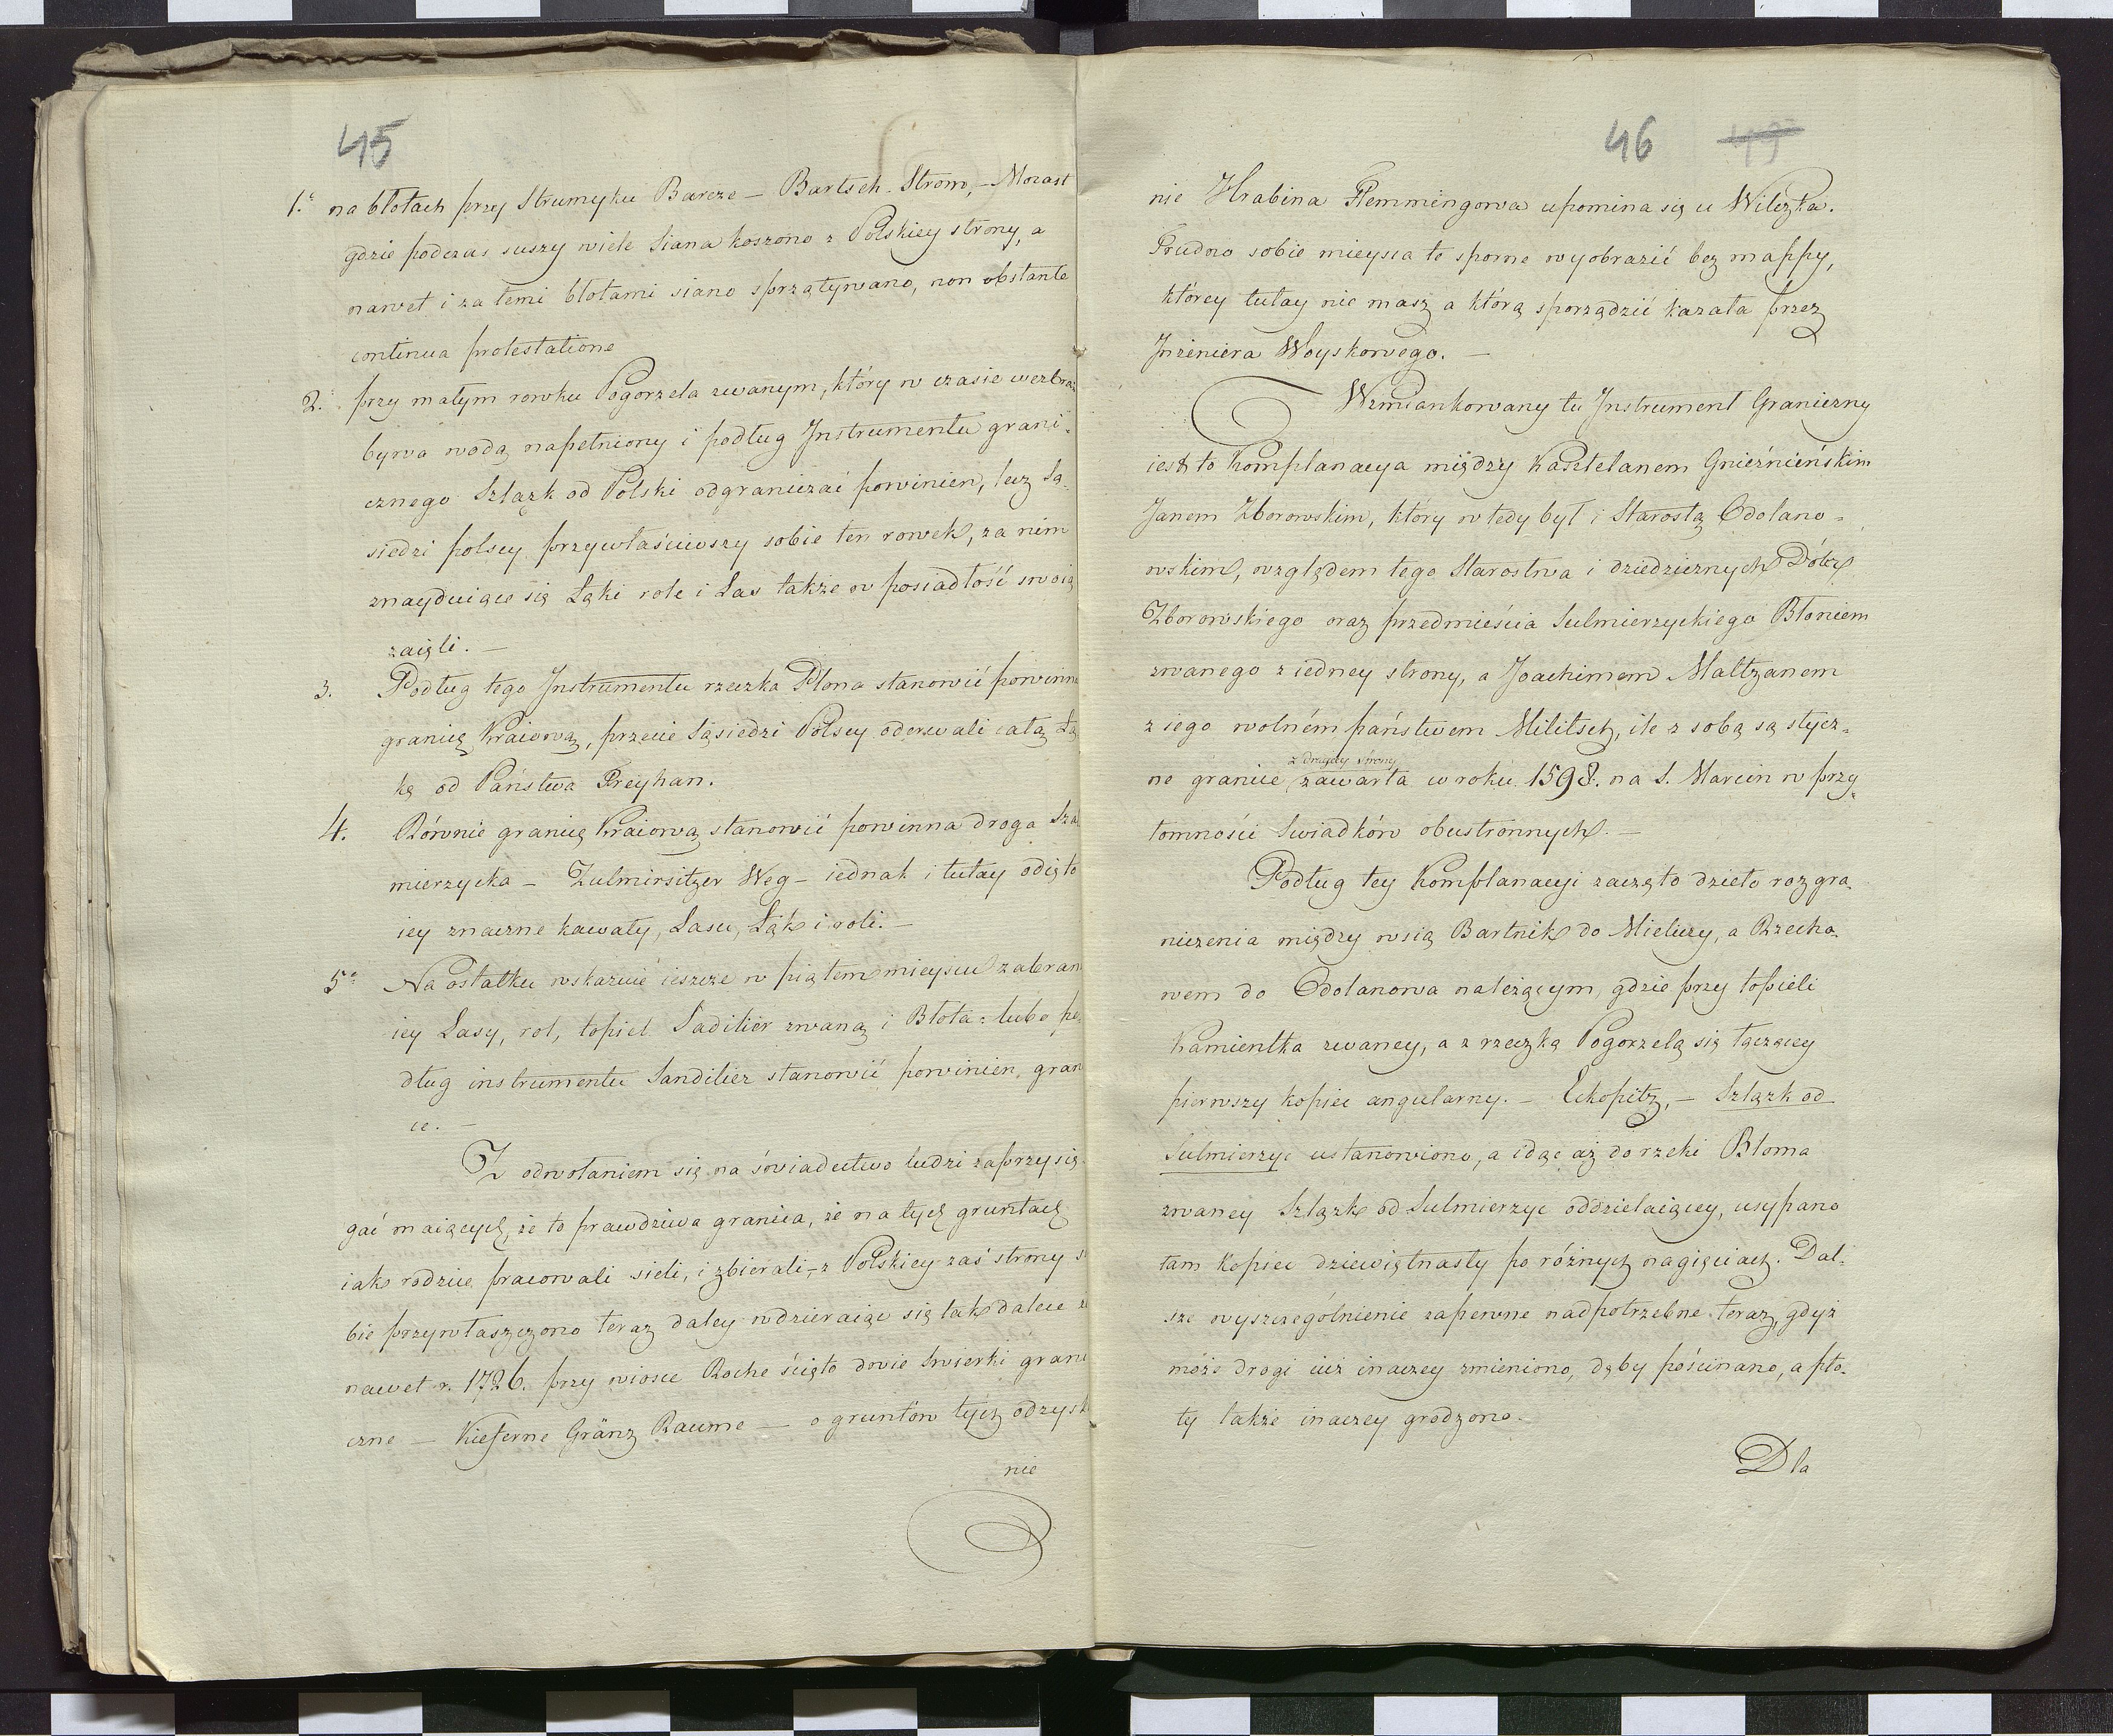 45
1.° na błotach przy Strumyku Barcze — Bartsch-Strom, — Morast
gdzie podczas suszy wiele Siana koszono z Polskiey strony, a
nawet i za temi błotami siano sprzątywano, non obstante
continua protestatione
2. przy małym rowku Pogorzela zwanym, który w czasie wezbra
bywa wodą napełniony i podług Instrumentu grani=
cznego Szląsk od Polski odgraniczać powinien, lecz Są=
siedzi polscy przywłaściwszy sobie ten rowek, za nim
znayduiące się Łąki role i Las także w posiadłość swoią
zaięli. —
3. Podług tego Instrumentu rzeczka Płona stanowić powinna
granicę Kraiową, przecie Sąsiedzi Polscy oderwali całą Łą
kę od Państwa Freyhan.
4. Równie granicę Kraiową stanowić powinna droga Szul
mierzycka — Zulmirsitzer Weg — iednak i tutay odięto
iey znaczne kawały, Lasu, Łąk i roli. —
5° Na ostatku wskazuie ieszcze w piątem mieyscu zabran
iey Lasy, rol, topiel Saditier zwaną i Błota = lubo po
dług instrumentu Sanditier stanowić powinien gran
ce. —
Z odwołaniem się na świadectwo ludzi zaprzysię
gać maiących, że to prawdziwa granica, że na tych gruntach
iako rodzice pracowali sieli, i zbierali, — z Polskiey zaś strony so
bie przywłaszczono teraz daley wdzieraiąc się tak dalece że
nawet r. 1726. przy wiosce Roche ścięto dwie Swierki grani
czne — Kieferne Gränz Baume — o gruntów tych odzysk
nie
46 49
nie Hrabina Flemmingowa upomina się u Wilczka.
Trudno sobie mieysca te sporne wyobrazić bez mappy,
którey tutay nie masz a którą sporządzić kazała przez
Inżeniera Woyskowego. —
Wzmiankowany tu Instrument Graniczny
iest to Komplanacya między Kasztelanem Gnieźnieńskim
Janem Zborowskim, który wtedy był i Starostą Odolano=
wskim, względem tego Starostwa i dziedzicznych Dóbr
Zborowskiego oraz przedmieścia Sulmierzyckiego Błoniem
zwanego z iedney strony, a Joachimem Maltzanem
z iego wolném państwem Militsch, ile z sobą są stycz=
z drugiey strony
ne granice zawarta w roku 1598. na S. Marcin w przy=
tomności Swiadków obustronnych. —
Podług tey Komplanacyi zaczęto dzieło rozgra
niczenia między wsią Bartnik do Mieliczy, a Rzecho=
wem do Odolanowa należącym, gdzie przy topieli
Kamientka zwaney, a z rzeczką Pogorzelą się łączącey
pierwszy kopiec angularny. — Eckopitz, — Szląsk od
Sulmierzyc ustanowiono, a idąc aż do rzeki Błoma
zwaney Szląsk od Sulmierzyc oddzielaiącey, usypano
tam Kopiec dziewiętnasty po różnych nagięciach. Dal=
sze wyszczególnienie zapewne nadpotrzebne teraz, gdyż
może drogi iuż inaczey zmieniono, dęby pościnano, a pło=
ty także inaczey grodzono.
Dla